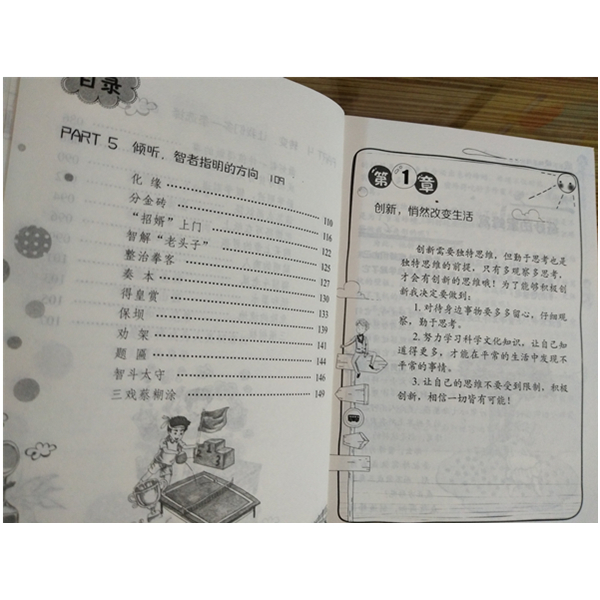 目录
PART 5 倾听，智者指明的方向 109
化 缘 110
分金砖 116
“招婿”上门 122
智解“老头子” 125
整治拳客 127
奏 本 130
得皇赏 133
保坝 139
劝 架 141
题 匾 144
智斗太守 146
三戏蔡糊涂 149
第1章
创新，悄然改变生活
创新需要独特思维，但勤于思考也是
独特思维的前提，只有多观察多思考，
才会有创新的思维哦！为了能够积极创
新我决定要做到：
1. 对待身边事物要多多留心，仔细观
察，勤于思考。
2. 努力学习科学文化知识，让自己知
道得更多，才能在平常的生活中发现不
平常的事情。
3. 让自己的思维不要受到限制，积极
创新，相信一切皆有可能！